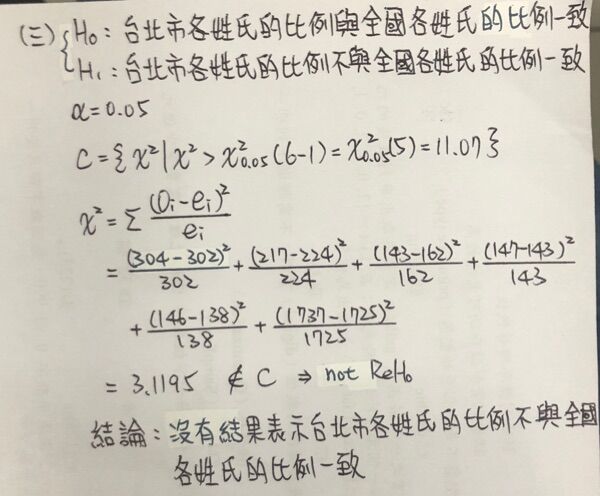 (三) { H₀ : 台北市各姓氏的比例與全國各姓氏的比例一致
H₁ : 台北市各姓氏的比例不與全國各姓氏的比例一致
α=0.05
C={χ²|χ²>χ²₀.₀₅(6-1)=χ²₀.₀₅(5)=11.07}
χ²=Σ (Oi-ei)²/ei
= (304-302)²/302 + (217-224)²/224 + (143-162)²/162 + (147-143)²/143
+ (146-138)²/138 + (1737-1725)²/1725
= 3.1195 ∉ C ⇒ not ReH₀
結論 : 沒有結果表示台北市各姓氏的比例不與全國
各姓氏的比例一致